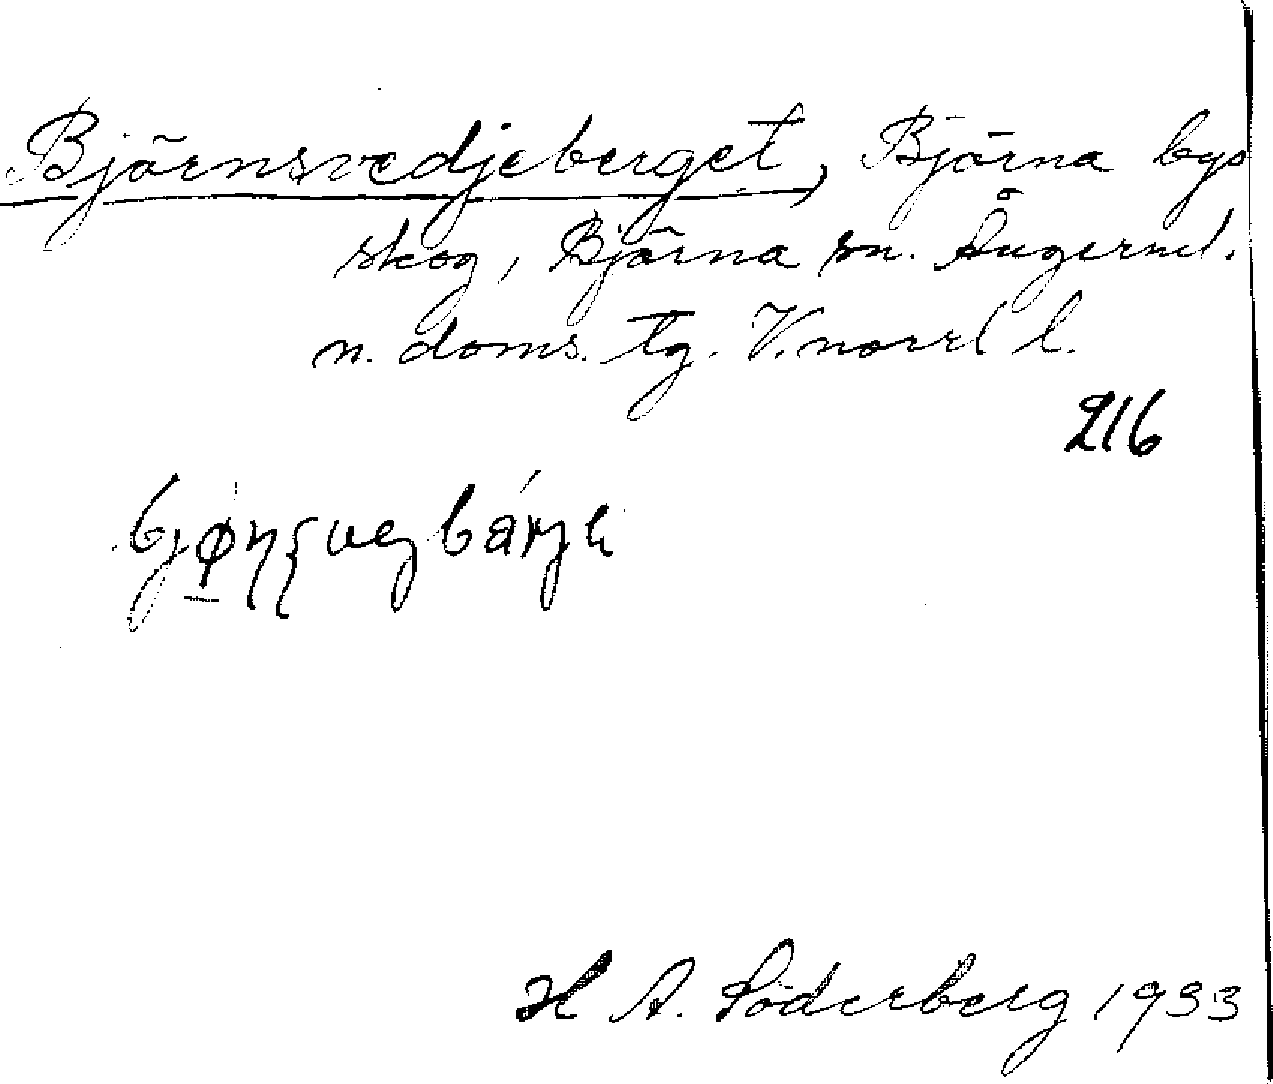 Björnsvedjeberget, Björna bys
skog, Björna sn. Ångerml.
n. doms. tg. V.norrl l.
216
H A. Söderberg 1933